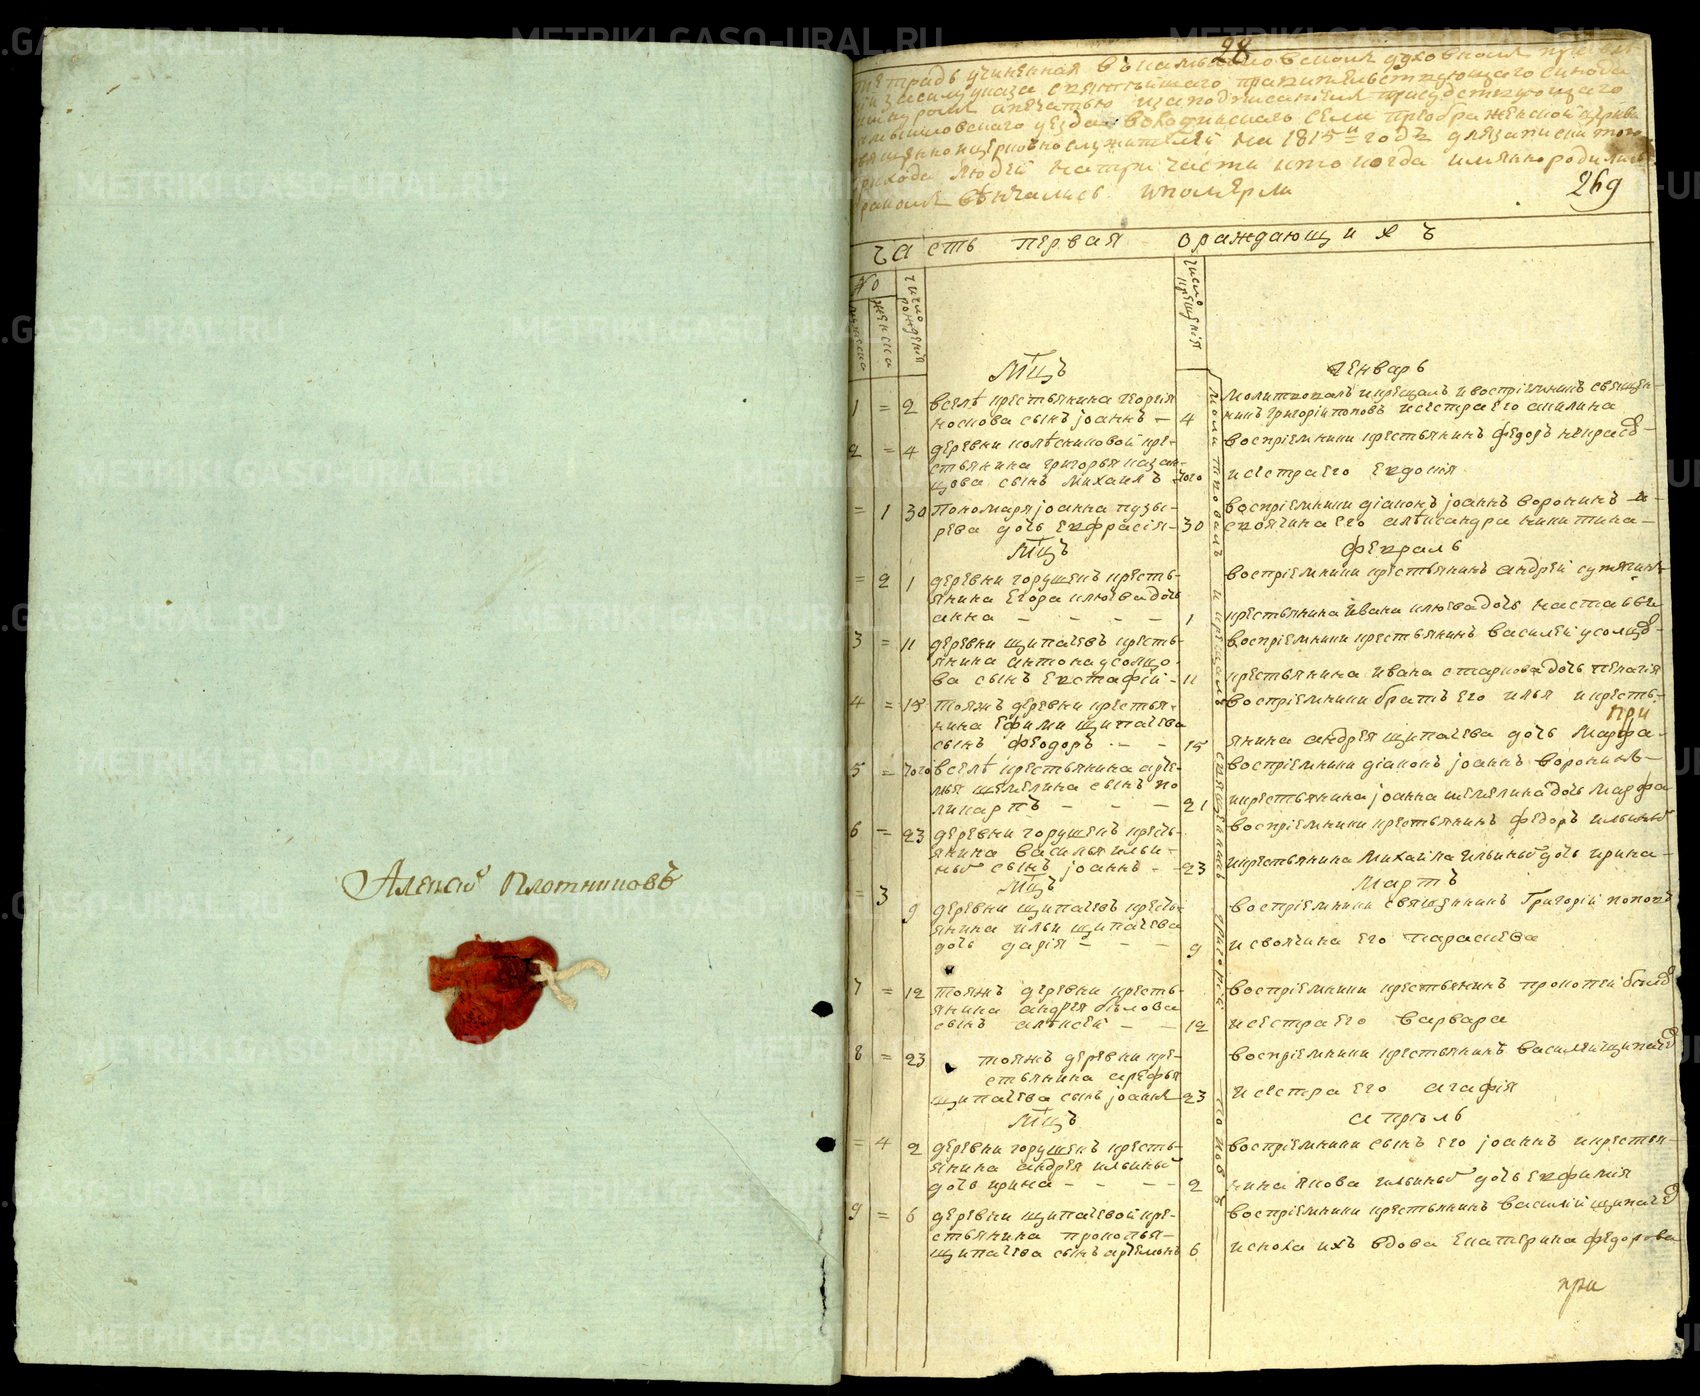 Алексей Плотниковъ
28
тетрадь учиненная въ камышловскомъ духовномъ правле-
нии въ силу указа святейшаго правительствующаго синода
за шнуромъ и печатью и за подписаниемъ присудствующаго
камышловскаго уезда села преображенской церкви
священноцерковнослужителей на 1815й годъ для записки того
прихода людей на три части кто когда имянно родились
бракомъ вѣнчались и померли
269
часть первая о раждающихъ
№
мужеска
женска
число рождения
число крещения
Мцъ Генварь
1 = 2 в селѣ крестьянина георгия
носкова сынъ іоаннъ — 4
молитвовалъ и крещалъ и восприемникъ священ-
никъ григорій поповъ и сестра его акилина
2 = 4 деревни колѣсниковой кре-
стьянина григорья казан-
цова сынъ михаилъ — того
восприемники крестьянинъ федоръ некрасо
и сестра его евдокия
= 1 30 пономаря іоанна пузы-
рева дочь евфрасія — 30
восприемники діаконъ іоаннъ воронинъ и
своячина его александра никитина —
Мцъ февраль
= 2 1 деревни горушекъ кресть-
янина егора клюева дочь
анна — — — — 1
восприемники крестьянинъ андрей сутягинъ
крестьянина ивана клюева дочь настасия
3 = 11 деревни щипачевъ кресть-
янина антона усолцо-
ва сынъ евстафій — 11
восприемники крестьянинъ василей усолцо
крестьянина ивана старкова дочь пелагія
4 = 15 тояжъ деревни крестья-
нина ефима щипачева
сынъ феодоръ — — 15
восприемники братъ его илья и кресть-
янина андрея щипачева дочь марфа —
при
5 = того в селѣ крестьянина арте-
мья шемелина сынъ по
ликарпъ — — — 21
восприемники діаконъ іоаннъ воронинъ
крестьянина іоанна шемелина дочь марфа
6 = 23 деревни горушекъ кресть-
янина василья ильи-
ныхъ сынъ іоаннъ — 23
восприемники крестьянинъ федоръ ильиныхъ
крестьянина михайла ильиныхъ дочь ирина —
Мцъ Мартъ
= 3 9 деревни щипачевъ кресть-
янина ильи щипачева
дочь дарія — — — 9
восприемники священникъ григорій поповъ
и своячина его параскева
7 = 12 тояжъ деревни кресть-
янина андрея бѣлова
сынъ алексей — — 12
восприемники крестьянинъ прокопей бѣлов
и сестра его варвара
8 = 23 тояжъ деревни кре-
стьянина арефья
щипачева сынъ іоаннъ — 23
восприемники крестьянинъ василей щипачев
и сестра его агафія
Мцъ Апрѣль
= 4 2 деревни горушекъ кресть-
янина андрея ильиныхъ
дочь ирина — — — — 2
восприемники сынъ его іоаннъ и крестья-
нина якова ильиныхъ дочь евфимія
9 = 6 деревни щипачевой кре-
стьянина прокопья —
щипачева сынъ артемонъ 6
восприемники крестьянинъ василій щипачев
и сноха ихъ вдова екатерина федорова
молитвовалъ и крещалъ священникъ григорій поповъ
при